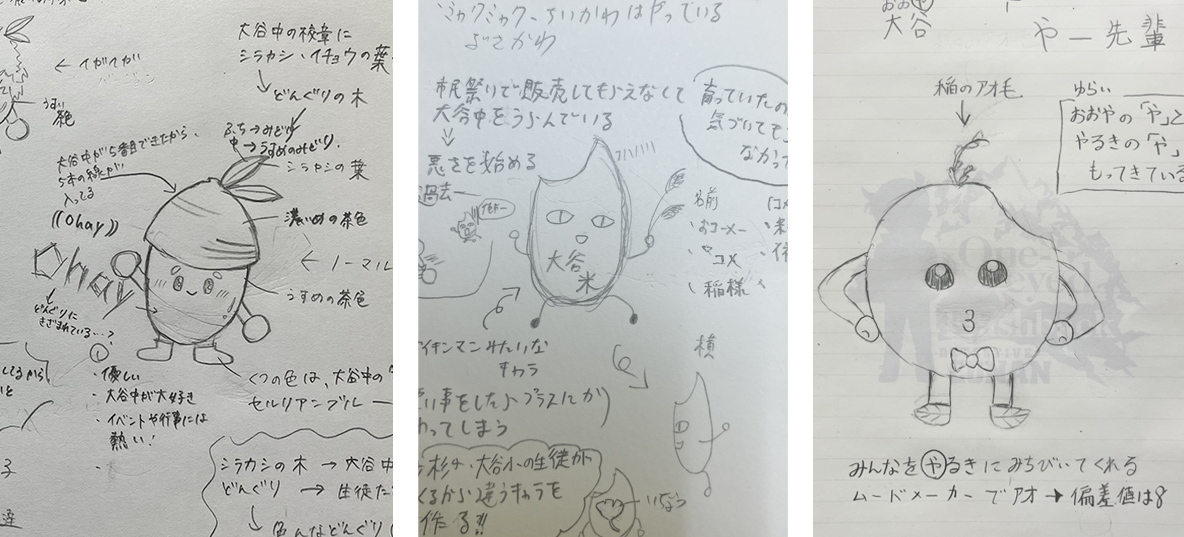 大谷中の校章に
シラカシ・イチョウの葉
どんぐりの木
← イガイガ
うすい
茶色
ふち→みどり
中→うすめのみどり。
シラカシの葉
大谷中が5番目でできたから、
5本の線が
入ってる
((Ohay))
濃いめの茶色
Ohay
← ノーマル
うすめの茶色
どんぐりに
きざまれている…?
・優しい
・大谷中が大好き
・イベントや行事には
熱い!
くつの色は、大谷中の
セルリアンブルー
シラカシの木 → 大谷中
どんぐり → 生徒た
色んなどんぐり
ミャクミャク、ちいかわはやっている
ぶさかわ
市民祭りで販売してもらえなくて
大谷中をうらんでいる
悪さを始める
過去
育っていたの
気づいても
なかっ
名前
・おコーメー
コメ
・稲様
大谷
米
イキンマンみたいな
キャラ
横
い事をしたらプラスにか
わってしまう
杉小・大谷小の生徒が
くるから違うキャラを
作る!!
いちょう
大谷
やー先輩
稲のアオ毛
ゆらい
おおやの「や」と
やるきの「や」
もってきている
3
みんなをやるきにみちびいてくれる
ムードメーカーでアオ→偏差値は8